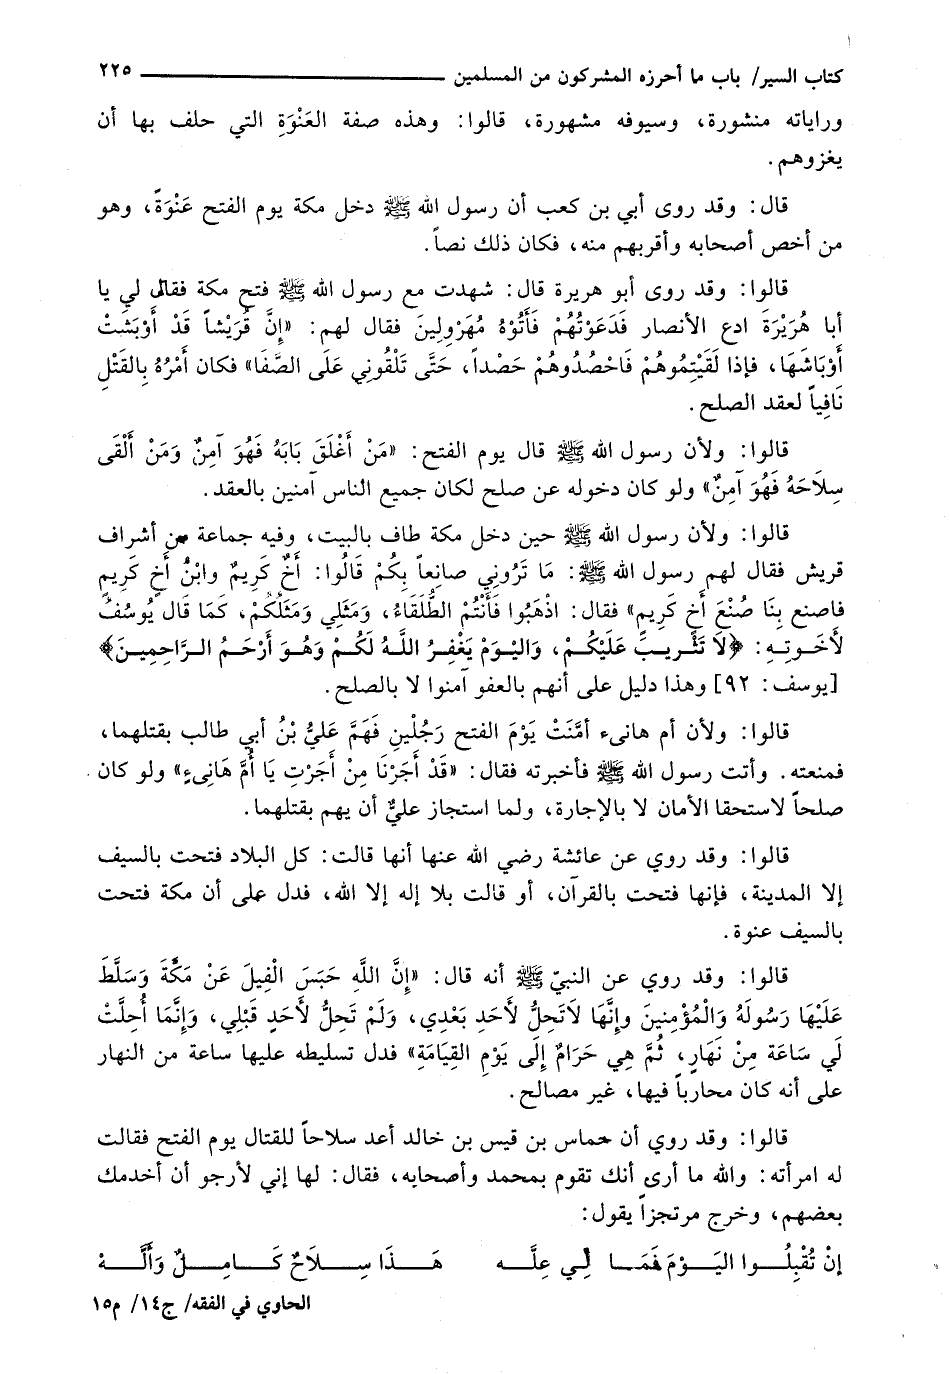 كتاب السير/ باب ما أحرزه المشركون من المسلمين ٢٢٥
وراياته منشورة، وسيوفه مشهورة، قالوا: وهذه صفة العَنْوَةِ التي حلف بها أن
يغزوهم.
قال: وقد روى أبي بن كعب أن رسول الله ﷺ دخل مكة يوم الفتح عَنْوَةً، وهو
من أخص أصحابه وأقربهم منه، فكان ذلك نصاً.
قالوا: وقد روى أبو هريرة قال: شهدت مع رسول الله ﷺ فتح مكة فقال لي يا
أبا هُرَيْرَةَ ادع الأنصار فَدَعَوْتُهُمْ فَأَتَوْهُ مُهَرْوِلِينَ فقال لهم: «إِنَّ قُرَيْشاً قَدْ أَوْبَشَتْ
أَوْبَاشَهَا، فإذا لَقَيْتِمُوهُمْ فَاحْصُدُوهُمْ حَصْداً، حَتَّى تَلْقُونِي عَلَى الصَّفَا» فكان أَمْرُهُ بِالقَتْلِ
نَافِياً لعقد الصلح.
قالوا: ولأن رسول الله ﷺ قال يوم الفتح: «مَنْ أَغْلَقَ بَابَهُ فَهُوَ آمِنٌ وَمَنْ أَلْقَى
سِلَاحَهُ فَهُوَ آمِنٌ» ولو كان دخوله عن صلح لكان جميع الناس آمنين بالعقد.
قالوا: ولأن رسول الله ﷺ حين دخل مكة طاف بالبيت، وفيه جماعة من أشراف
قريش فقال لهم رسول الله ﷺ: مَا تَرُونِي صانِعاً بِكُمْ قَالُوا: أَخٌ كَرِيمٌ وابْنُ أَخٍ كَرِيمٍ
فاصنع بِنَا صُنْعَ أَخٍ كَرِيمٍ» فقال: اذْهَبُوا فَأَنْتُمُ الطُّلَقَاءُ، وَمَثَلِي وَمَثَلُكُمْ، كَمَا قَال يُوسُفُ
لأَخوتِهِ: ﴿لَا تَثْرِيبَ عَلَيْكُمْ، وَاليَوْمَ يَغْفِرُ اللَّهُ لَكُمْ وَهُوَ أَرْحَمُ الرَّاحِمِينَ﴾
[يوسف: ٩٢] وهذا دليل على أنهم بالعفو آمنوا لا بالصلح.
قالوا: ولأن أم هانىء أَمَّنَتْ يَوْمَ الفتح رَجُلَيْنِ فَهَمَّ عَلِيُّ بْنُ أبي طالب بقتلهما،
فمنعته. وأتت رسول الله ﷺ فأخبرته فقال: «قَدْ أَجَرْنَا مِنْ أَجَرْتِ يَا أُمَّ هَانِىءٍ» ولو كان
صلحاً لاستحقا الأمان لا بالإجارة، ولما استجاز عليٌّ أن يهم بقتلهما.
قالوا: وقد روي عن عائشة رضي الله عنها أنها قالت: كل البلاد فتحت بالسيف
إلا المدينة، فإنها فتحت بالقرآن، أو قالت بلا إله إلا الله، فدل على أن مكة فتحت
بالسيف عنوة.
قالوا: وقد روي عن النبيّ ﷺ أنه قال: «إِنَّ اللَّهِ حَبَسَ الْفِيلَ عَنْ مَكَّةَ وَسَلَّطَ
عَلَيْهَا رَسُولَهُ وَالْمُؤْمِنينَ وإنَّهَا لاَتَحِلُّ لأَحَدِ بَعْدِي، وَلَمْ تَحِلُّ لأَحَدٍ قَبْلِي، وَإِنَّمَا أُحِلَّتْ
لَي سَاعَة مِنْ نَهَارٍ، ثُمَّ هِي حَرَامٌ إِلَى يَوْمِ القِيَامَةِ» فدل تسليطه عليها ساعة من النهار
على أنه كان محارباً فيها، غير مصالح.
قالوا: وقد روي أن حماس بن قيس بن خالد أعد سلاحاً للقتال يوم الفتح فقالت
له امرأته: والله ما أرى أنك تقوم بمحمد وأصحابه، فقال: لها إني لأرجو أن أخدمك
بعضهم، وخرج مرتجزاً يقول:
إنْ تُقْبِلُوا اليَوْمَ فَمَا لِي عِلَّه هَذَا سِلَاحٌ كَامِلٌ وَأَلَّهْ
الحاوي في الفقه/ ج١٤/ م١٥